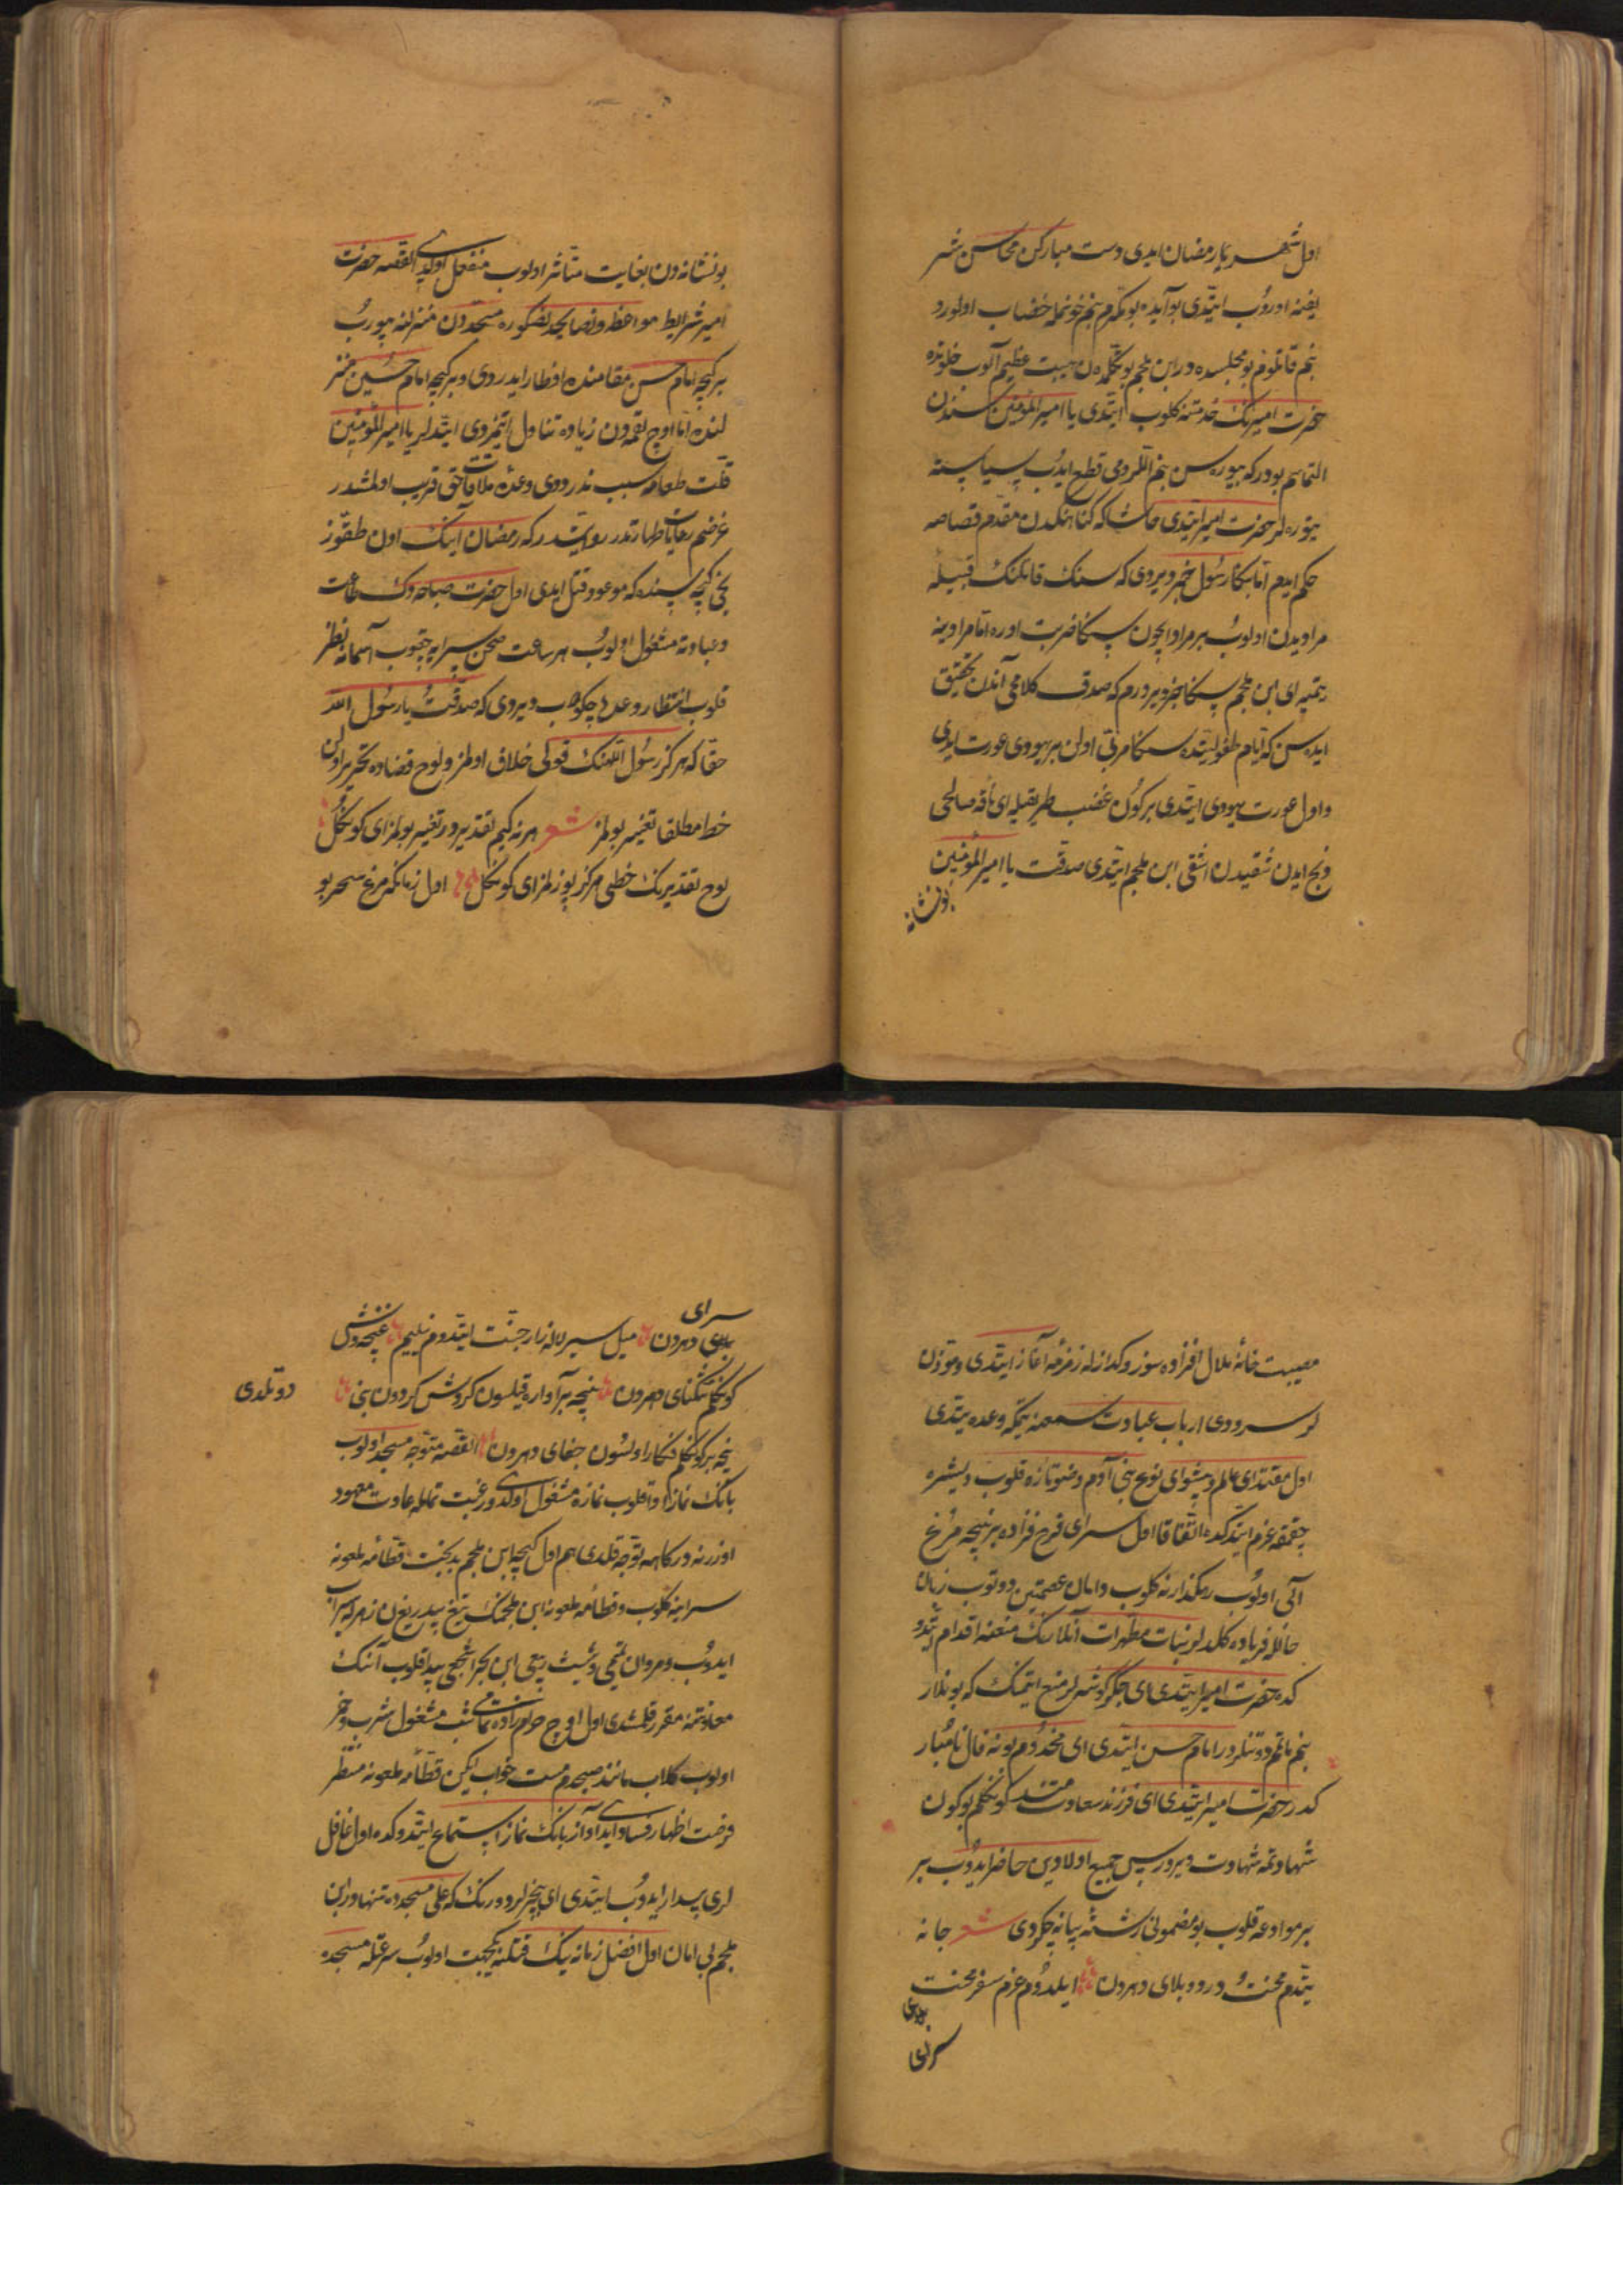 اول شهریار رمضان ایدی دست مبارکن محاسن شر
یفنه اوروب ایتدی بو آیده بو مکرم بنم خونمله خضاب اولورد
بنم قاتلوم بو مجلسده در ابن ملجم بو تکلمدن هیبت عظیم آلوب خلوتده
حضرت امیرنک خدمتنه کلوب ایتدی یا امیر المؤمنین سندن
التماسم بودرکه بیوره سن بنم اللرومی قطع ایدب سیاسته
یتوره لر حضرت امیر ایتدی حاشا که کناهنکدن مقدم قصاصه
حکم ایدم اما بکا رسول خبر ویردی که سنک قاتلنک قبیله
مرادیدن اولوب بر مراد ایچون سکا ضربت اوره اما مرادینه
یتمیه ای ابن ملجم سکا خبر ویررم که صدق کلامی آندن تحقیق
ایده سن که ایام طفولیتده سکا مربی اولن بر یهودی عورت ایدی
و اول عورت یهودی ایتدی بر کون غضب طریقیله ای ناقه صالحی
ذبح ایدن شقیدن اشقی ابن ملجم ایتدی صدقت یا امیر المؤمنین
بو نشانه
بو نشانه دن بغایت متأثر اولوب منفعل اولدی القصه حضرت
امیر شرایط مواعظ و نصایحدن صکره مسجددن منزلنه بیورب
بر کیجه امام حسن مقامنده افطار ایدردی و بر کیجه امام حسین منز
لنده اما اوچ لقمه دن زیاده تناول ایتمزدی ایتدلر یا امیر المؤمنین
قلت طعامه سبب ندر ددی وعده ملاقات حق قریب اولمشدر
غرضم رعایت طهارتدر روایتدر که رمضان آینک اون طقوز
نجی کیجه سنده که موعود قتل ایدی اول حضرت صباحه دک طاعت
و عباوته مشغول اولوب هر ساعت صحن سرایه چقوب آسمانه نظر
قلوب انتظار وعده چکوب دیردی که صدقت یا رسول الله
حقا که هرکز رسول اللهنک قولی خلاف اولمز و لوح قضاده تحریر اولن
خط مطلقا تغییر بولمز شعر هر نه کیم تقدیردر تغییر بولمز ای کوکل
لوح تقدیرنک خطی هرکز پوزلمز ای کوکل اول زمانکه مرغ سحر بو
مصیبت خانۀ ملال افزاده سوز و کدازله زمزمه آغاز ایتدی و مؤذن
لر سرودی ارباب عبادت سمعنه یتمکه وعده یتدی
اول مقتدای عالم و پیشوای نوع بنی آدم وضو تازه قلوب دیشره
چقمغه عزم ایتدکده اتفاقا اول سرای فرح فزاده بر نیچه مرغ
آلی اولوب رهکذارنه کلوب دامان عصمتین دوتوب زبان
حالله فریاده کلدلر بنات مطهرات آنلارنک منعنه اقدام ایتدو
کده حضرت امیر ایتدی ای جکر کوشه لر منع ایتمنک که بونلار
بنم ماتمم دوتنلردر امام حسن ایتدی ای مخدوم بو نه فال نامبار
کدر حضرت امیر ایتدی ای فرزند سعادتمند کوکلم بو کون
شهادتمه شهادت ویرور پس جمیع اولادین حاضر ایدوب بر
بر موادعه قلوب بو مضمونی رشتۀ بیانه چکردی شعر جانه
یتدم محنت و درد و بلای دهردن ایلدوم عزم سفر محنت
سرای
سرای دهردن میل سیر لاله زار جنت ایتدوم نیلیم غنچه وش
کوکلم تنکنای دهردن نیچه بر آواره قیلسون کردش کردون بنی دوتلدی
نیچه بر کوکلم فکار اولسون جفای دهردن القصه متوجه مسجد اولوب
بانک نماز ادا قلوب نمازه مشغول اولدی و رغبت تمامله عادت معهود
اوزرنه درکاهه توجه قلدی هم اول کیجه ابن ملجم بدبخت قطامه ملعونه
سراینه کلوب و قطامه ملعونه ابن ملجمنک تیغ بیدریغن زهرله سیراب
ایدوب و مروان تمیمی و شبث ربعی ابن بجر اشجعی پیدا قلوب آننک
معاونتنه مقرر قلمشدی اول اوچ حرامزاده تمامی شب مشغول شرب خمر
اولوب کلاب مانند صبحدم مست خواب لیکن قطامه ملعونه منتظر
فرصت اظهار فساد ایدی آواز بانک نماز استماع ایتدوکده اول غافل
لری بیدار ایدوب ایتدی ای بیخبرلر دورنک که علی مسجده تنهادر ابن
ملجم بی امان اول افضل زمانه نیک قتلنه یکجهت اولوب سرعتله مسجده